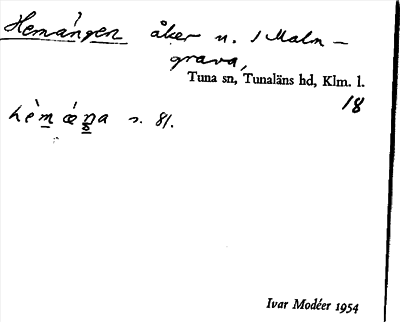 Hemängen åker n. 1 Malm-
grava,
Tuna sn, Tunaläns hd, Klm. l.
18
s. 81.
Ivar Modéer 1954